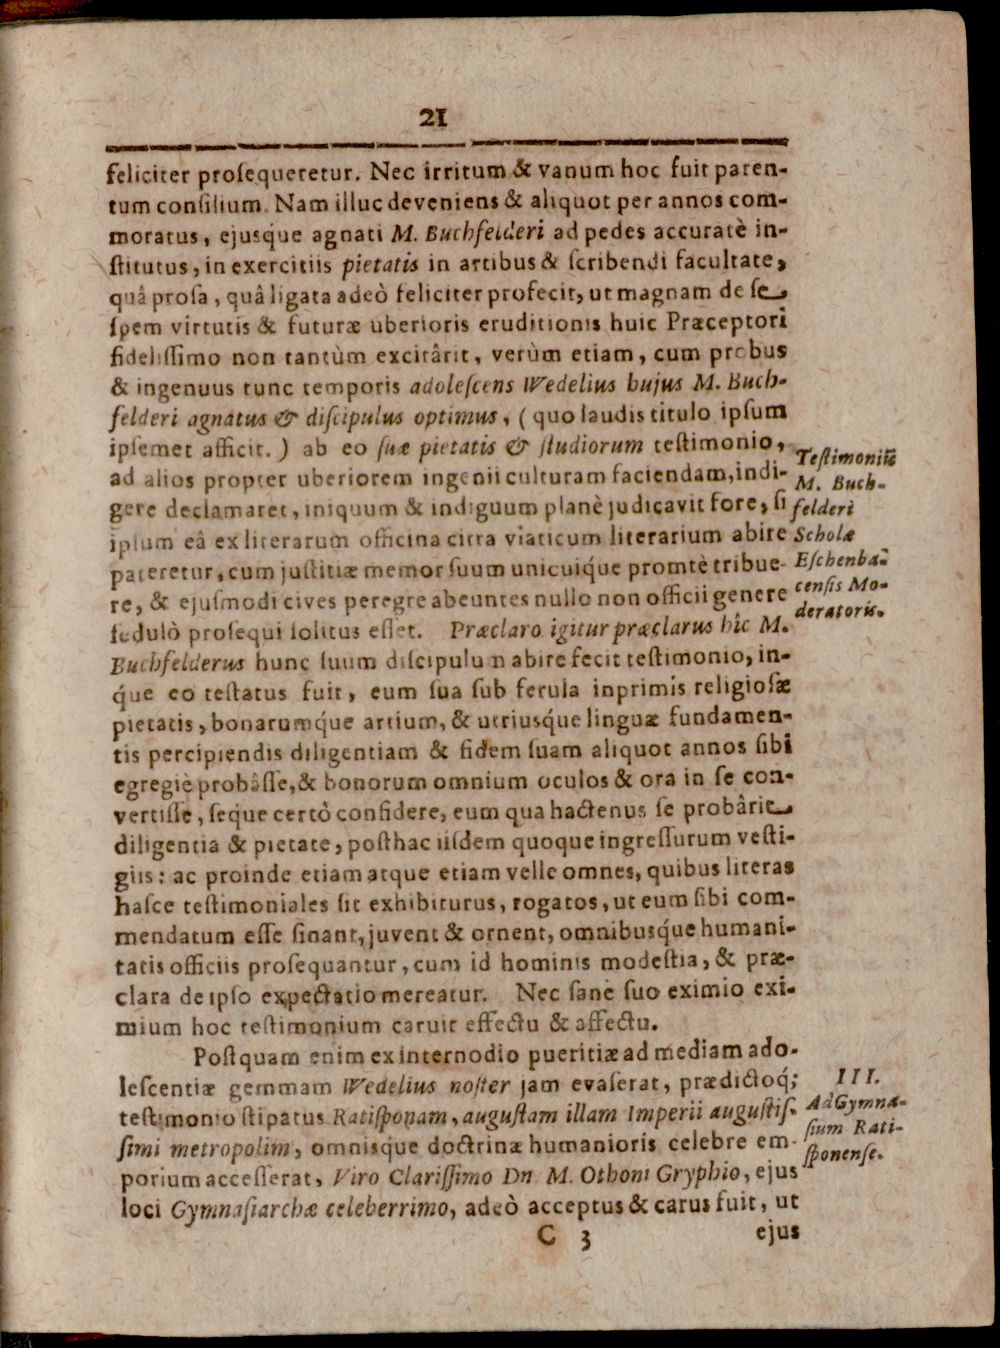 21
feliciter proſequeretur. Nec irritum & vanum hoc fuit paren-
tum conſilium. Nam illuc deveniens & aliquot per annos com-
moratus, ejusque agnati M. Buchfelderi ad pedes accuratè in-
ſtitutus, in exercitiis pietatis in artibus & ſcribendi facultate,
quâ proſa, quâ ligata adeò feliciter profecit, ut magnam de ſe
ſpem virtutis & futuræ uberioris eruditionis huic Præceptori
fideliſſimo non tantùm excitârit, verùm etiam, cum probus
& ingenuus tunc temporis adoleſcens Wedelius hujus M. Buch-
felderi agnatus & diſcipulus optimus, (quo laudis titulo ipſum
ipſemet afficit.) ab eo ſuæ pietatis & ſtudiorum teſtimonio,
ad alios propter uberiorem ingenii culturam faciendam, indi-
gere declamaret, iniquum & indiguum planè judicavit fore, ſi
ipſum eâ ex literarum officina citra viaticum literarium abire
pateretur, cum juſtitiæ memor ſuum unicuiq́ue promtè tribue-
re, & ejuſmodi cives peregre abeuntes nullo non officii genere
ſedulò proſequi ſolitus eſſet. Præclaro igitur præclarus hîc M.
Buchfelderus hunc ſuum diſcipulum abire fecit teſtimonio, in-
q́ue eo teſtatus fuit, eum ſua ſub ferula inprimis religioſæ
pietatis, bonarumq́ue artium, & utriusq́ue linguæ fundamen-
tis percipiendis diligentiam & fidem ſuam aliquot annos ſibi
egregiè probâſſe, & bonorum omnium oculos & ora in ſe con-
vertiſſe, ſeque certò confidere, eum qua hactenus ſe probârit
diligentia & pietate, poſthac iiſdem quoque ingreſſurum veſti-
giis: ac proinde etiam atque etiam velle omnes, quibus literas
haſce teſtimoniales ſit exhibiturus, rogatos, ut eum ſibi com-
mendatum eſſe ſinant, juvent & ornent, omnibusq́ue humani-
tatis officiis proſequantur, cum id hominis modeſtia, & præ-
clara de ipſo expectatio mereatur. Nec ſanè ſuo eximio exi-
mium hoc teſtimonium caruit effectu & affectu.
Poſtquam enim ex internodio pueritiæ ad mediam ado-
leſcentiæ gemmam Wedelius noſter jam evaſerat, prædictoq́;
teſtimonio ſtipatus Ratiſponam, auguſtam illam Imperii auguſtiſ-
ſimi metropolim, omnisque doctrinæ humanioris celebre em-
porium acceſſerat, Viro Clariſſimo Dn. M. Othoni Gryphio, ejus
loci Gymnaſiarchæ celeberrimo, adeò acceptus & carus fuit, ut
C 3 ejus
Teſtimoniũ
M. Buch-
felderi
Scholæ
Eſchenba-
cenſis Mo-
deratoris.
III.
Ad Gymna-
ſium Rati-
ſponenſe.